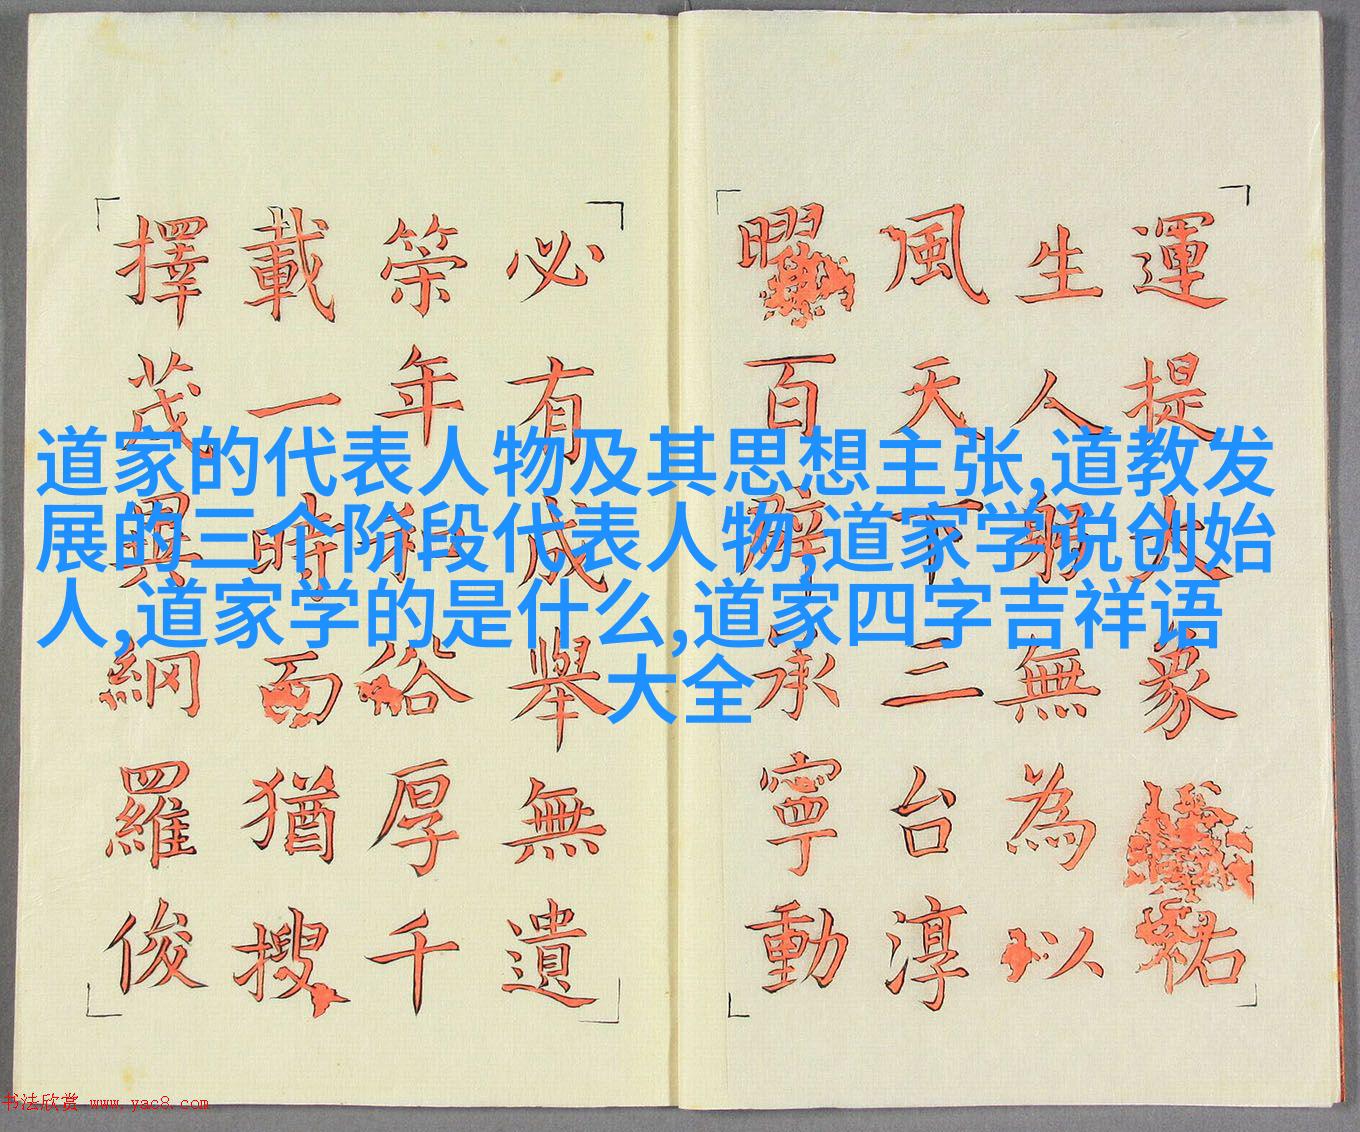 道家的代表人物及其思想主张,道教发
展的三个阶段代表人物,道家学说创始
人,道家学的是什么,道家四字吉祥语
大全
運提大象祐
生人躬無為以
風天下三台淳
曜百辟承寧動
必有成舉無遺
筞年和俗厚千
載一時而猶搜
擇茂異網羅俊
书法欣赏 www.yac8.com